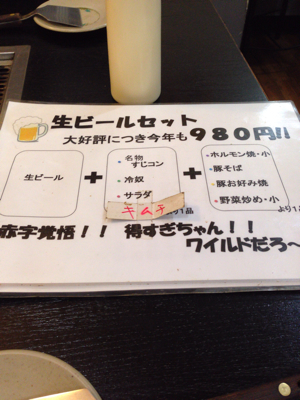 生ビールセット
大好評につき今年も９８０円!!
生ビール
+
名物
すじコン
冷奴
サラダ
キムチ
より1品
+
ホルモン焼・小
豚そば
豚お好み焼
野菜炒め・小
より1品
赤字覚悟！！ 得すぎちゃん！！
ワイルドだろ～